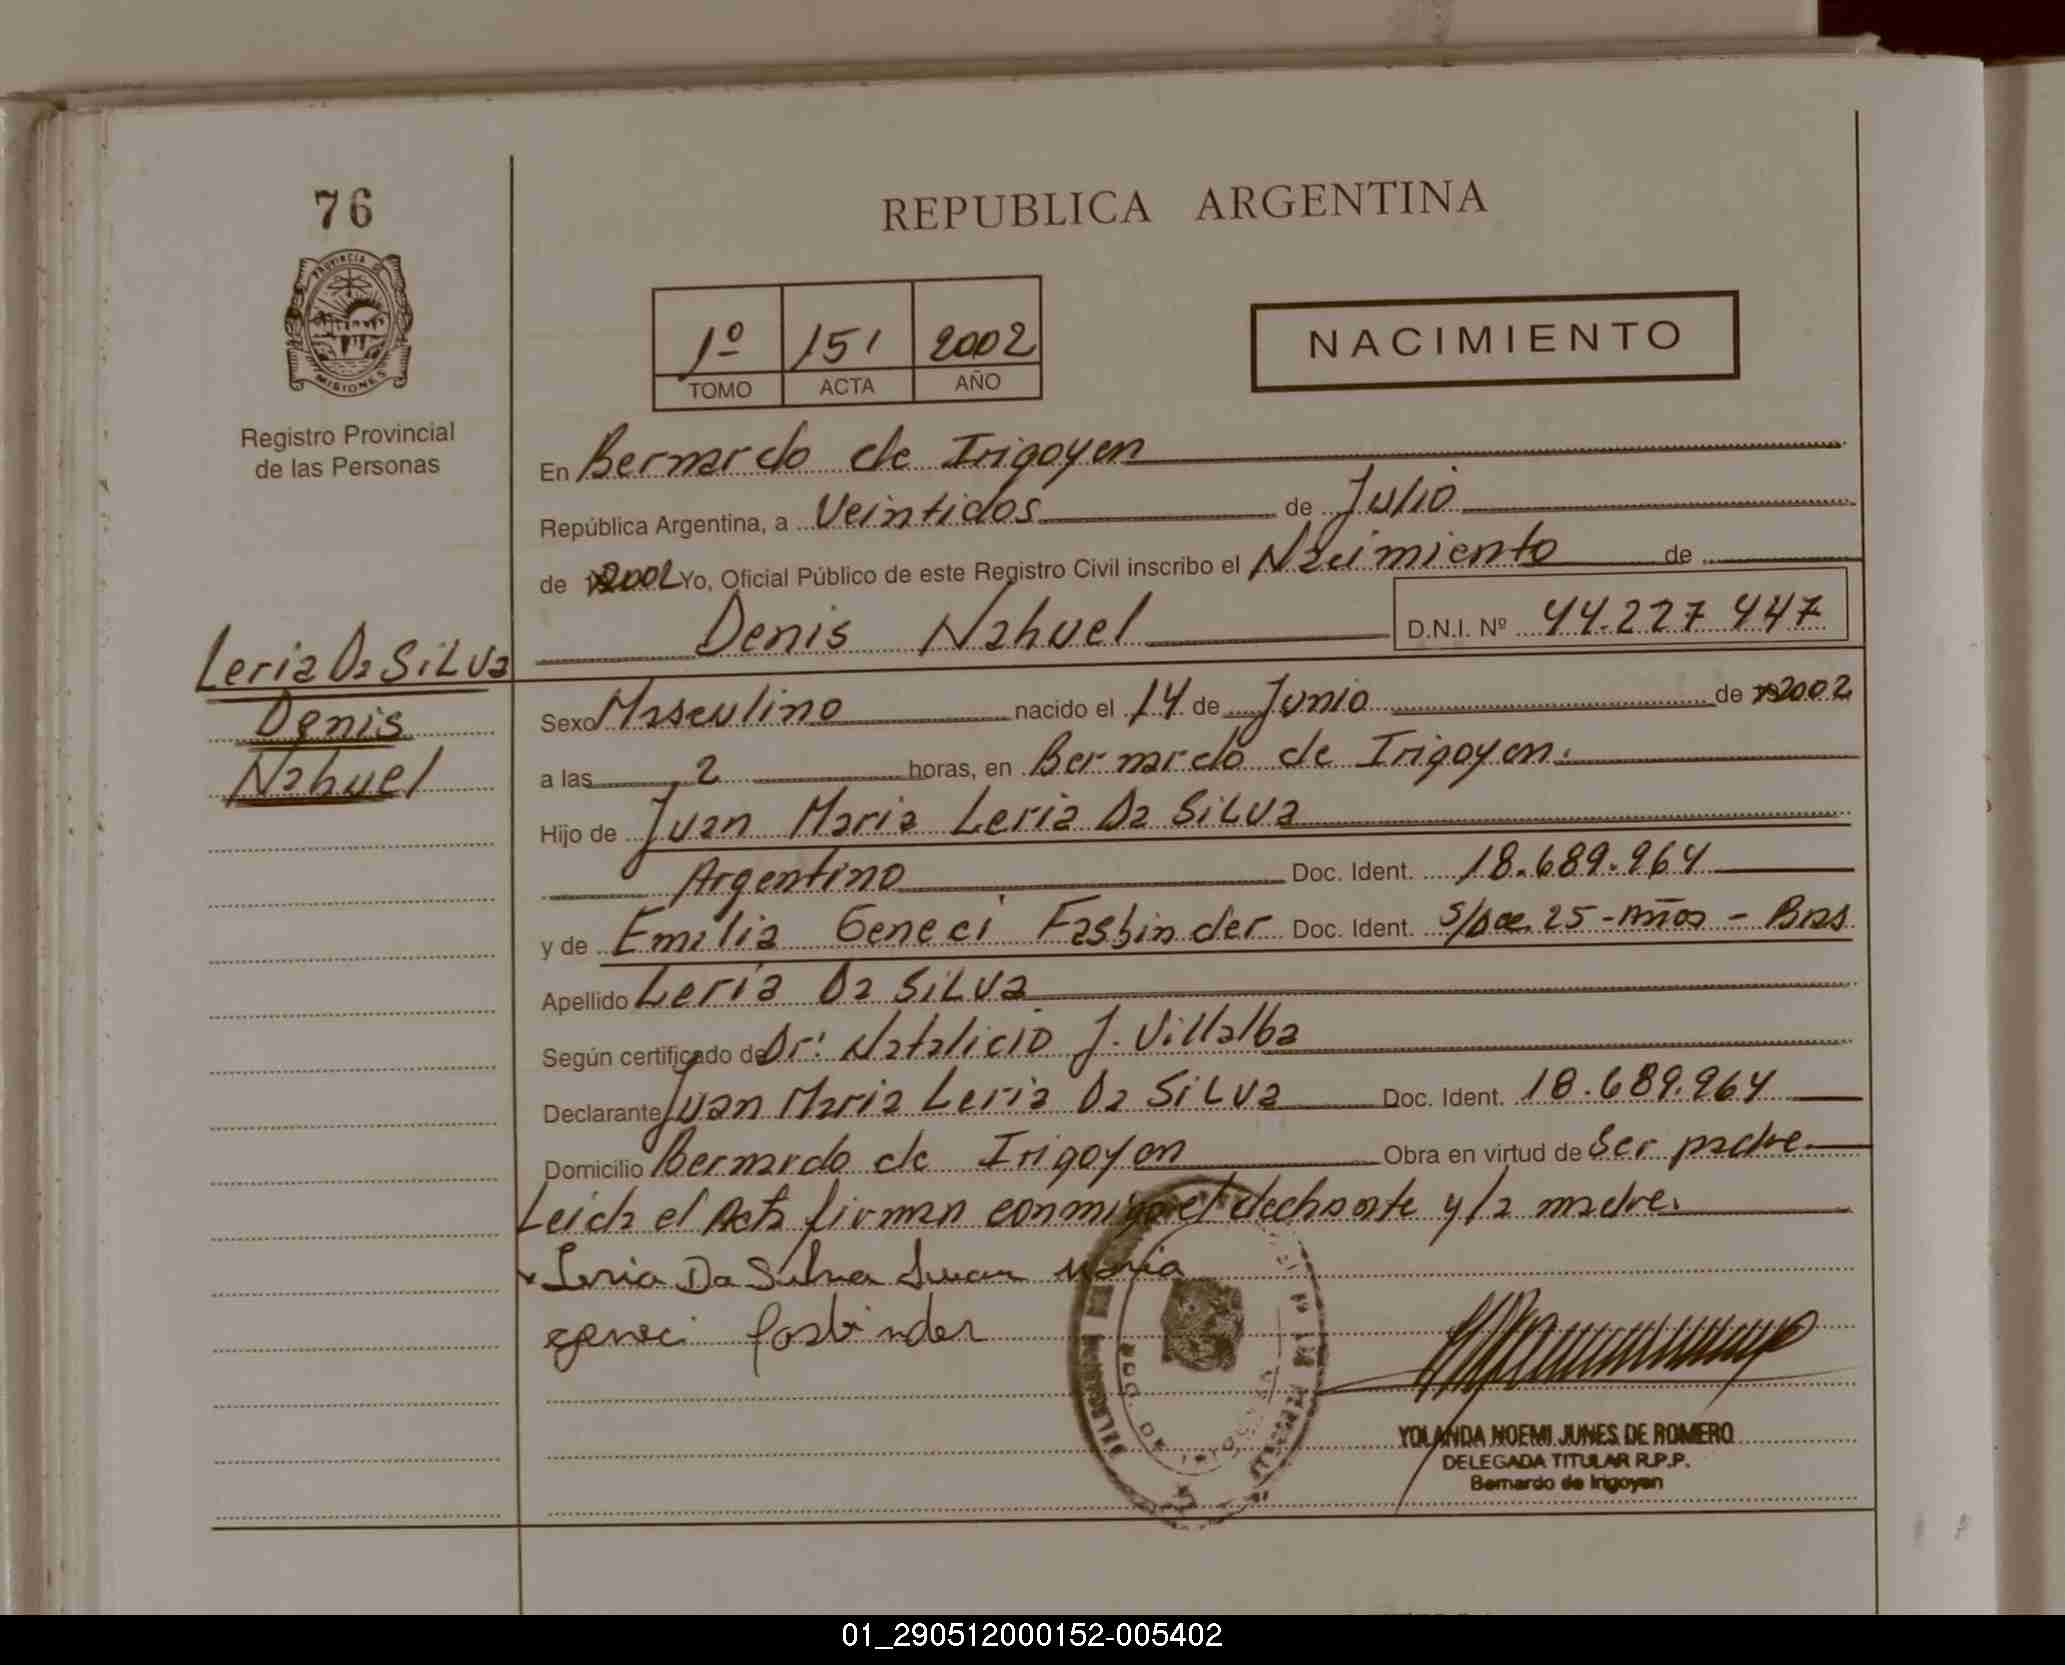 76
PROVINCIA DE
MISIONES
Registro Provincial
de las Personas
REPUBLICA ARGENTINA
1º 151 2002
TOMO ACTA AÑO
NACIMIENTO
En Bernardo de Irigoyen
República Argentina, a Veintidos de Julio
de 2002 Yo, Oficial Público de este Registro Civil inscribo el Nacimiento de
Denis Nahuel D.N.I. Nº 44.227 447
Leria Da Silva
Denis
Nahuel
Sexo Masculino nacido el 14 de Junio de 2002
a las 2 horas, en Bernardo de Irigoyen.
Hijo de Juan Maria Leria Da Silva
Argentino Doc. Ident. 18.689.964
y de Emilia Geneci Fasbinder Doc. Ident. s/Doc. 25-Años - Bras
Apellido Leria Da Silva
Según certificado de Dr: Natalicio J. Villalba
Declarante Juan Maria Leria Da Silva Doc. Ident. 18.689.964
Domicilio Bernardo de Irigoyen Obra en virtud de Ser padre
Leida el Acta firman conmigo el declarante y la madre.
Leria Da Silva Juan Maria
geneci fasbinder
BDO. DE IRIGOYEN
YOLANDA NOEMI JUNES DE ROMERO
DELEGADA TITULAR R.P.P.
Bernardo de Irigoyen
01_290512000152-005402